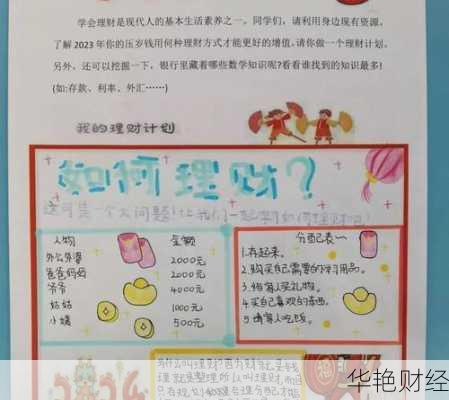 学会理财是现代人的基本生活素养之一。同学们，请利用身边现有资源，
了解 2023 年你的压岁钱用何种理财方式才能更好的增值，请你做一个理财计划。
另外，还可以挖掘一下，银行里藏着哪些数学知识呢?看看谁找到的知识最多!
(如:存款、利率、外汇……)
我的理财计划
如何理财?
这可是一个大问题!让我们一起
人物 金额
外公外婆 2000元
爸爸妈妈 2000元
爷爷 4000元
姑姑 1000元
小姨 500元
分配表
1.存起来。
2.购买自己需要的学习用品。
3.给家人买礼物。
4.买自己喜欢的东西。
5.请家人吃饭。
为什么叫理财
福
华艳财经